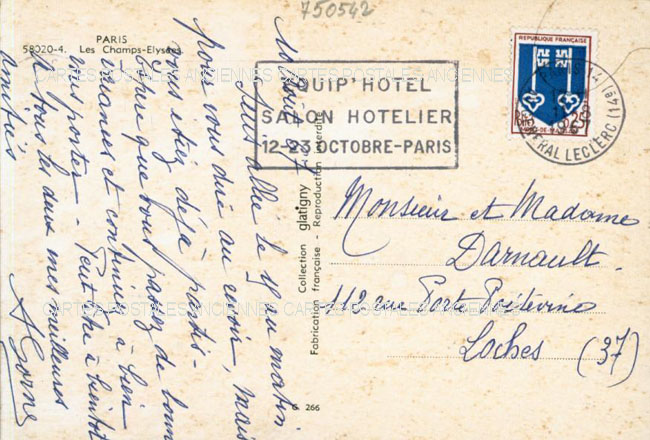 750542
PARIS
58020-4. Les Champs-Elysées
CARTES POSTALES ANCIENNES CARTES POSTALES ANCIENNES
QUIP'HOTEL
SALON HOTELIER
12-23 OCTOBRE-PARIS
REPUBLIQUE FRANÇAISE
0,25
PARIS 14
GÉRAL LECLERC (14è)
août 67
Suis allée le 19 au matin
pour vous dire au revoir, mais
vous étiez déjà partis -
que vous passez de bonnes
vacances et continuez à bien
vous porter - Peut être à bientôt
à tous les deux mes meilleures
amitiés
Collection glatigny
Fabrication française - Reproduction interdite
G 266
Monsieur et Madame
Darnault.
112 rue Porte Poitevine
Loches (37)
CARTES POSTALES ANCIENNES CARTES POSTALES ANCIENNES